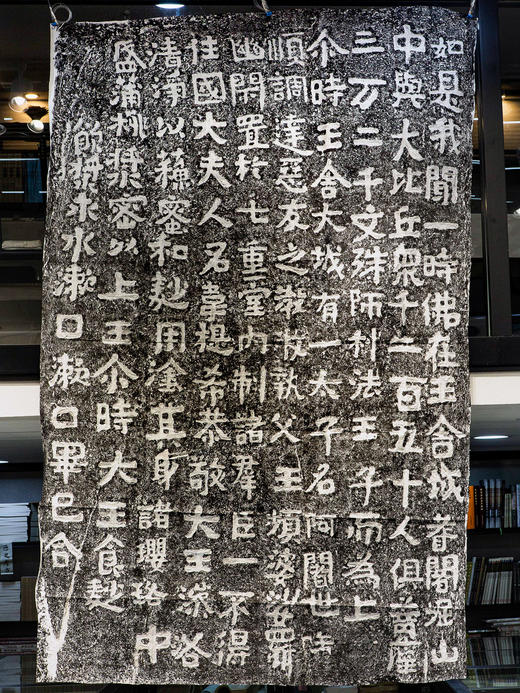 如是我聞一時佛在王舍城耆闍崛山
中與大比丘衆千二百五十人俱菩薩
三万二千文殊師利法王子而為上
尒時王舍大城有一太子名阿闍世隨
順調達惡友之教收執父王頻婆娑羅
幽閉置於七重室內制諸羣臣一不得
往國大夫人名韋提希恭敬大王澡浴
清淨以蘇蜜和麨用塗其身諸瓔珞中
盛蒲桃漿密以上王尒時大王食麨
飲漿求水漱口漱口畢已合